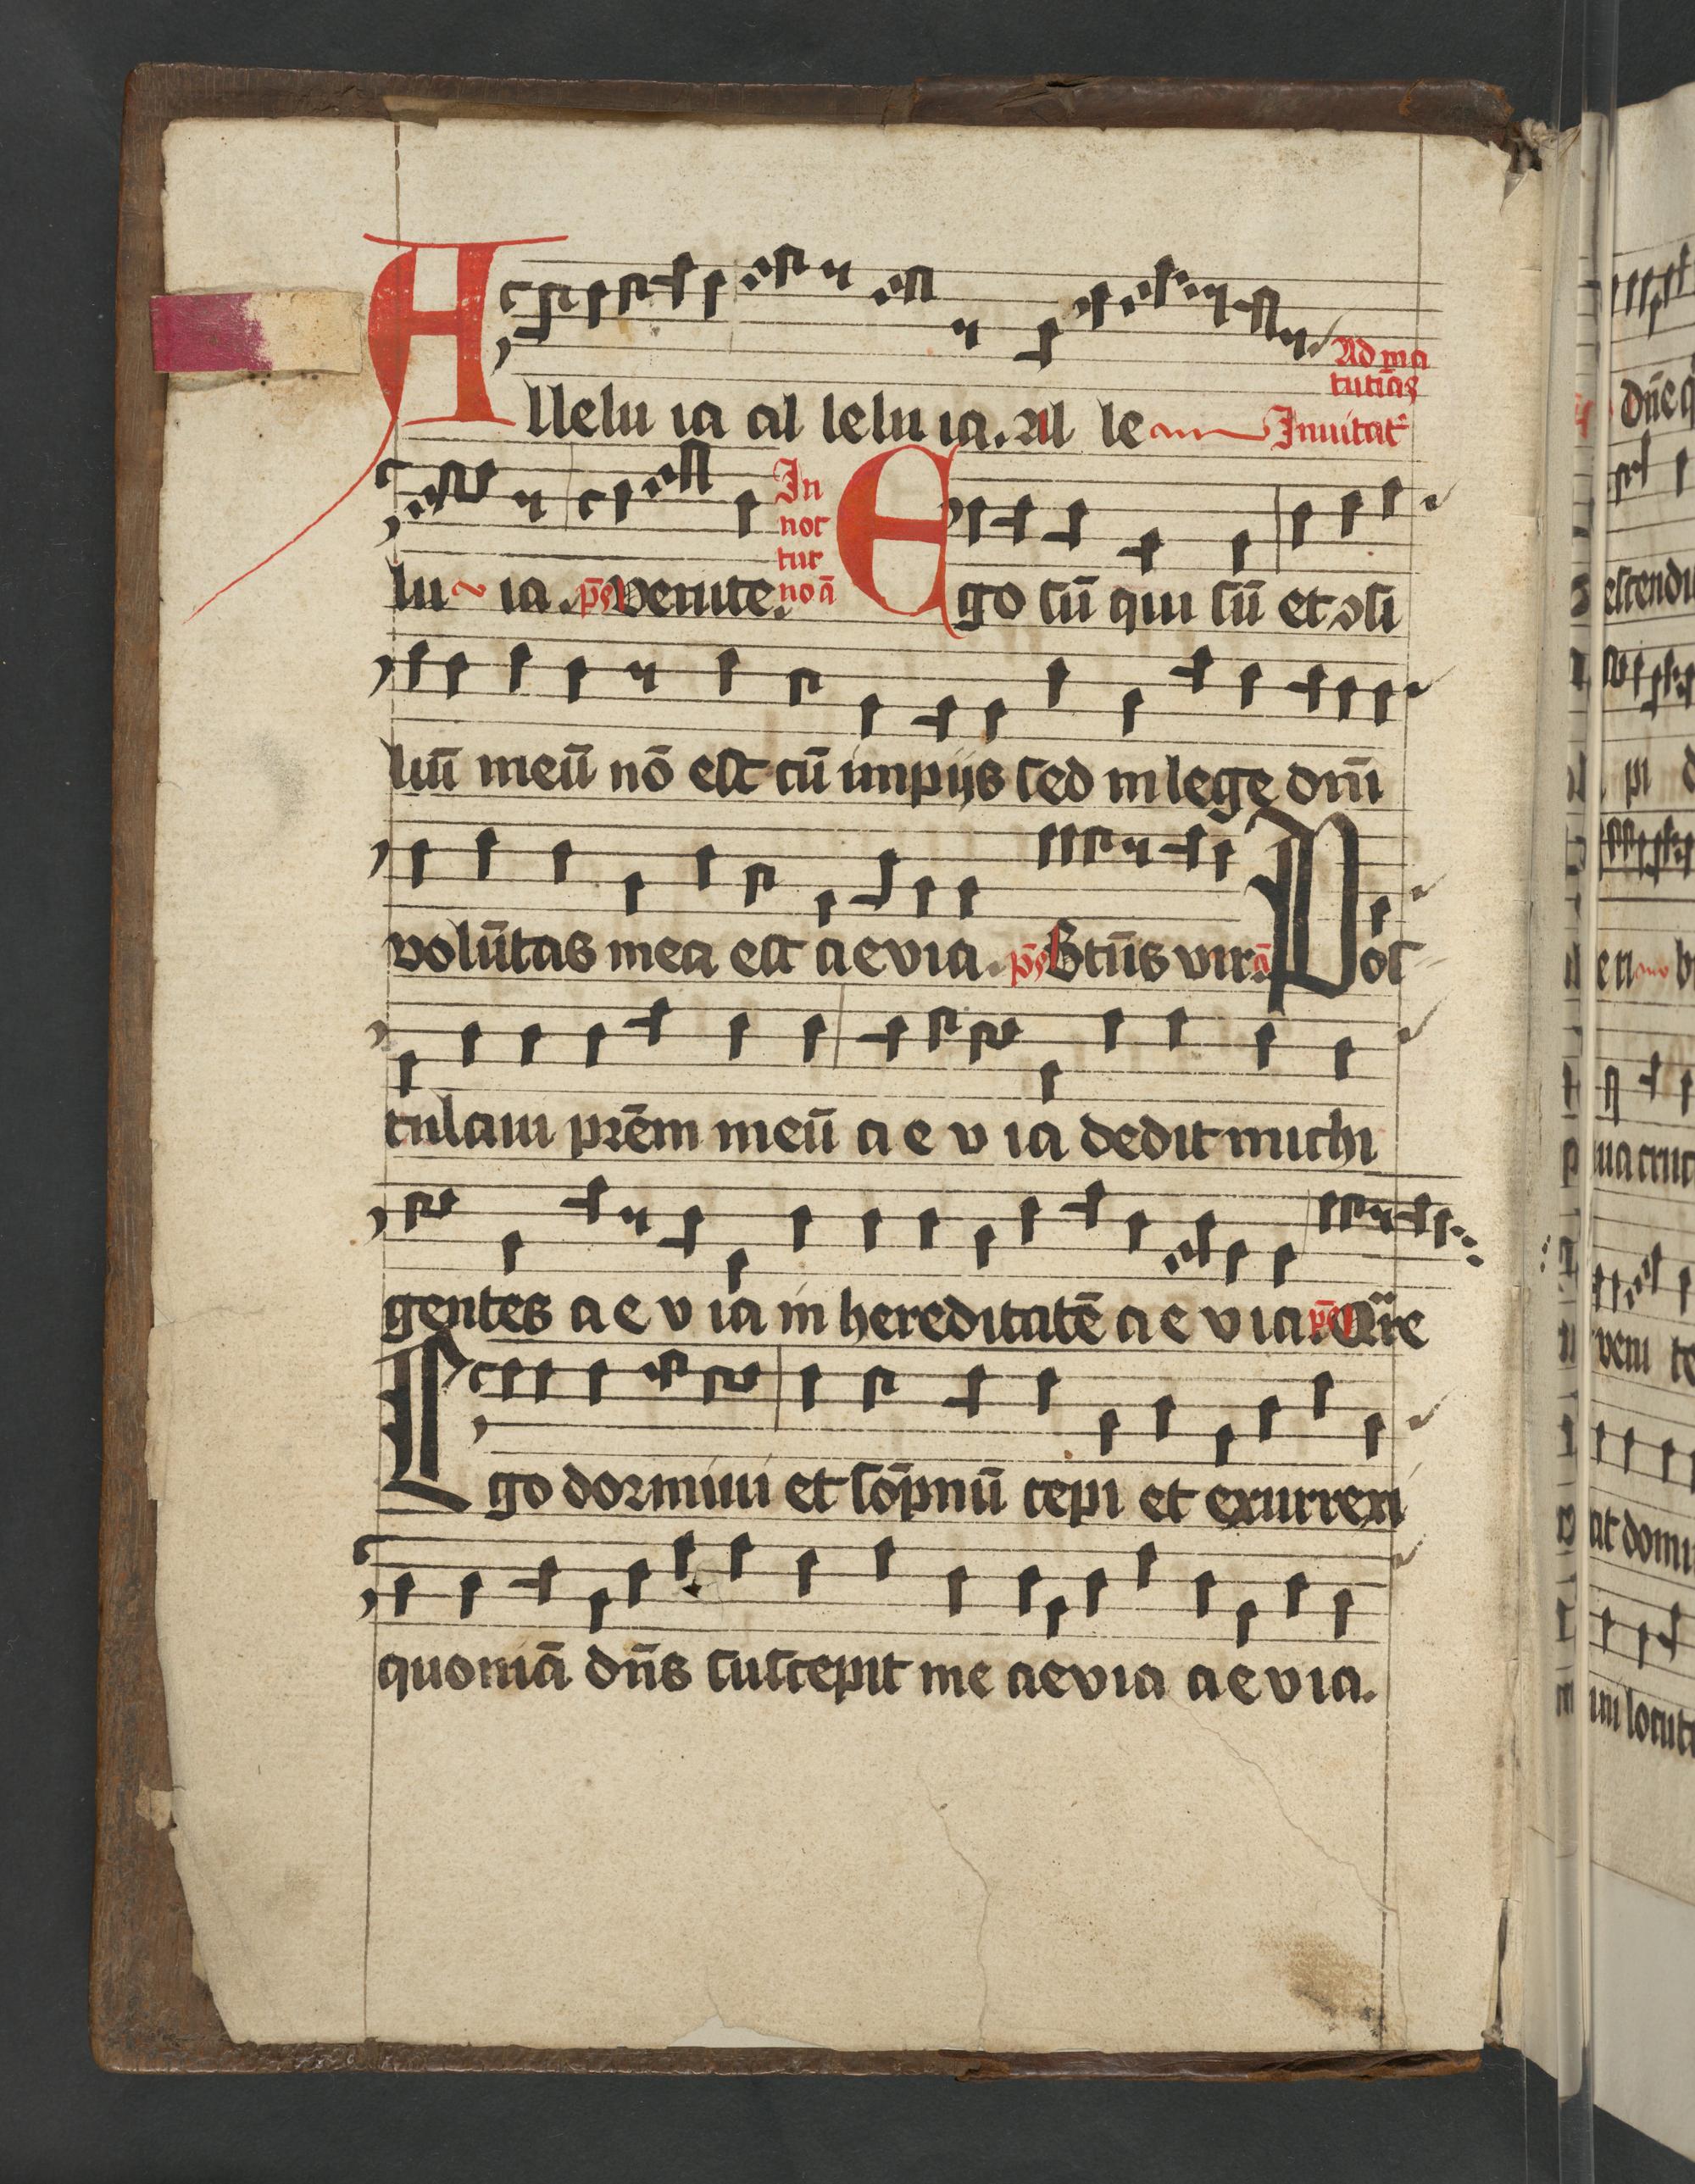 Ad ma
tutinas
Allelu ia al lelu ia. Al le Inuitat
lu ia. ps Venite. In noc tur no a Ego sū qui sū et ꝯsi
liū meū nō est cū impijs sed in lege dn̄i
volūtas mea est aevia. ps Btūs vir. a Pos
tulaui prēm meū a e v ia dedit michi
gentes a e v ia in hereditatē a e v ia. ps Qare
Ego dormiui et sōpnū cepi et exurrexi
quoniā dn̄s suscepit me aevia aevia.